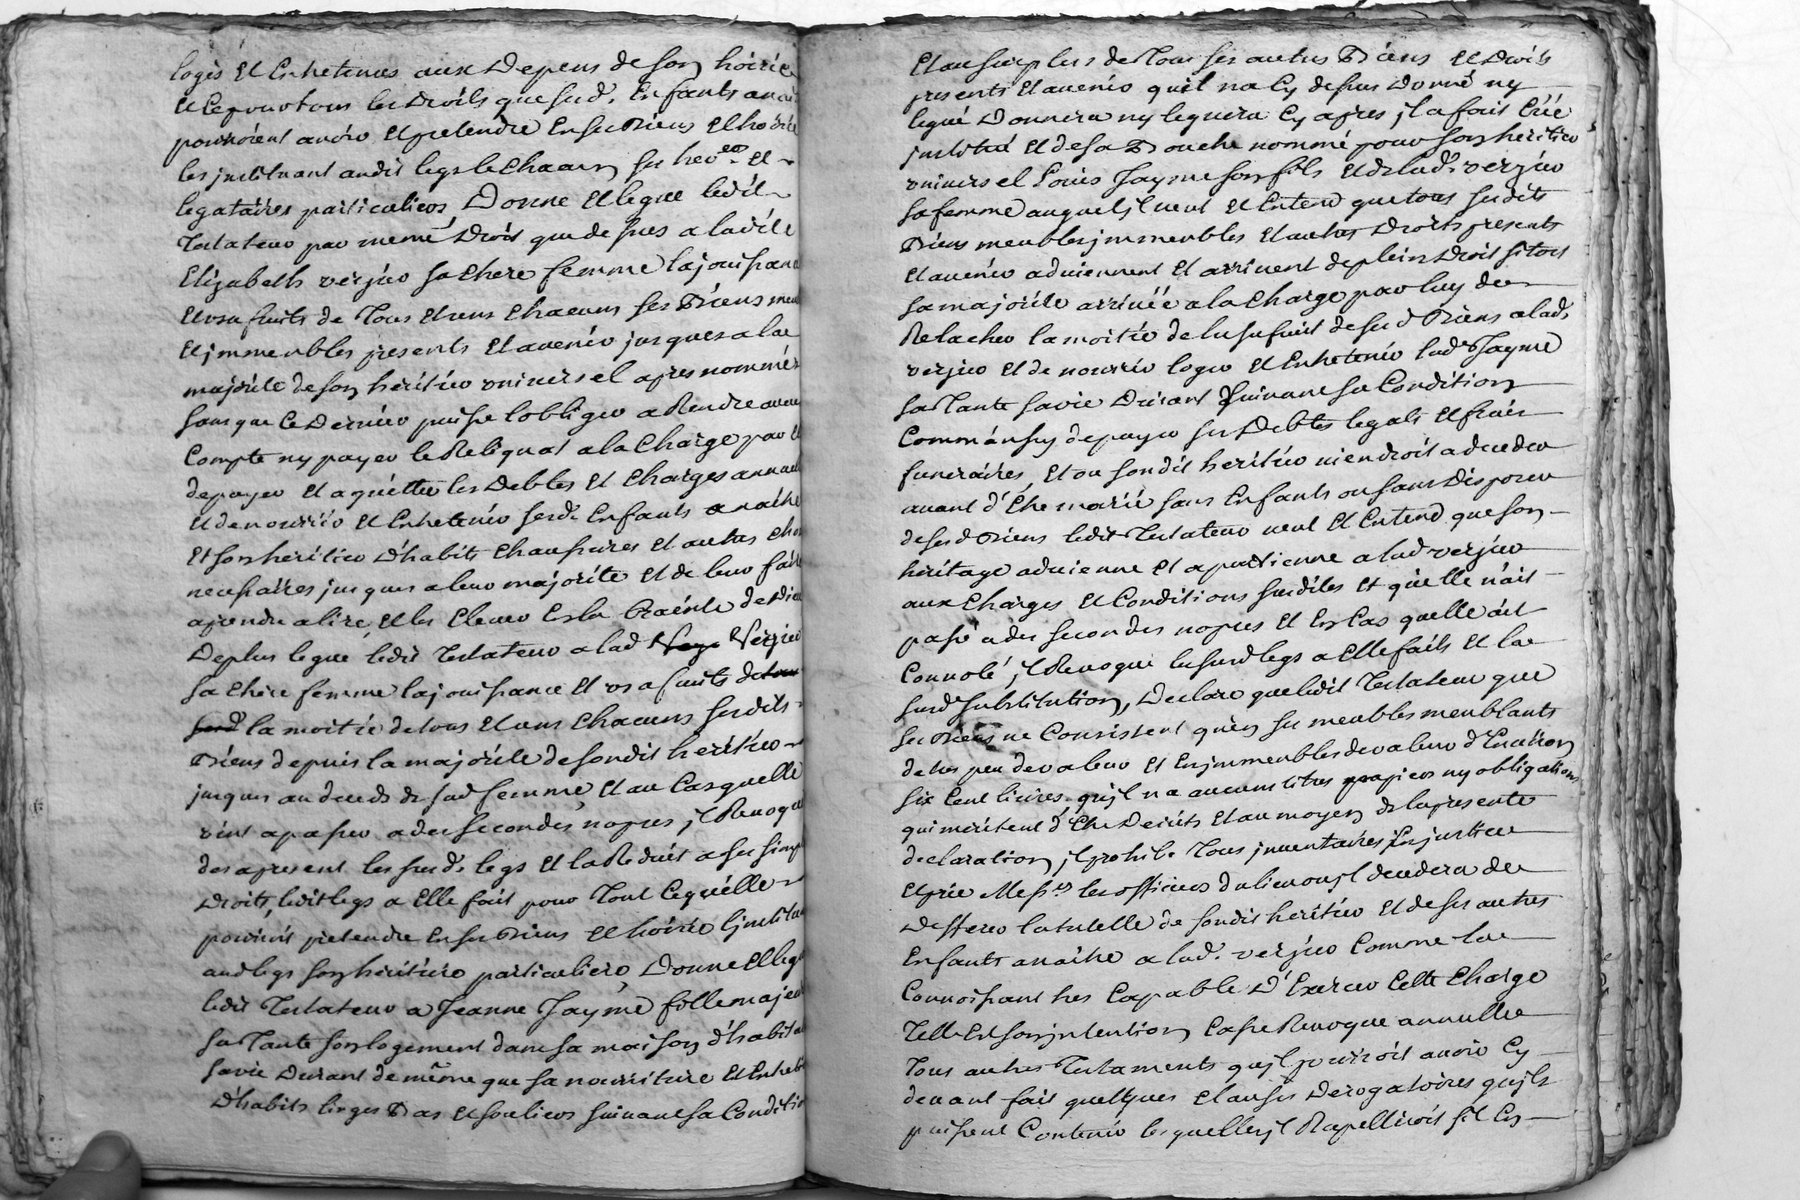 logés et Entretenus aux Depens de son hoirie
et ce pour tous les Droits que sesd. Enfants
pourroient avoir et pretendre En ses Biens et hoirie
les instituant audit legs le chacun ses her.ers et
legataires particuliers, Donne et legue ledit
Testateur par meme Droit que desus a ladite
Elizabeth verjus sa chere femme la jouisance
et usufruits de Tous et uns chacuns ses Biens meu
et jmmeubles presents et avenir jusques a la
majorité de son heritier universel apres nommé
sans que ce Dernier puise l'obliger a Rendre aucun
Compte ny payer le Reliquat a la charge par
de payer et aquitter les Debtes et charges annuel
et de nourrir et Entretenir sesd. Enfants a naitre
et son heritier d'habits chausures et autres cho
necesaires jusques a leur majorité et de leur faire
aprendre a lire, et les Elever En la Crainte de Dieu
Deplus legue ledit Testateur a lad Verjus
sa chere femme la jouisance et usufruits
la moitié de tous et uns chacuns sesdits
Biens depuis la majorité de sondit heritier
jusques au deceds de sad femme, et au cas quelle
vint a paser a des secondes nopces jl Revoque
des apresent les susd. legs et la Reduit a ses simp
Droits, ledit legs a Elle fait pour Tout ce quelle
pourroit pretendre En ses Biens et hoirie l'instituan
aud legs son heritiere particuliere, Donne et legu
ledit Testateur a Jeanne Jayme fille majeu
sa Tante son logement dans sa maison d'habitat
sa vie Durant de mème que sa nourriture et Entreti
d'habits linges Bas et souliers suivant sa Conditio
Et au surplus de Tous ses autres Biens et Droits
presents et avenir quil na Cy desus Donné ny
legué Donnera ny leguera Cy apres jl a fait Créé
jnstitué et de sa Bouche nommé pour son heritier
universel Louis Jayme son fils et de lad. verjus
sa femme auquel jl veut et Entend que tous sesdits
Biens meubles jmmeubles et autres Droits presents
et avenir adviennent et arrivent de plein Droit sitot
sa majorité arrivée a la charge par luy de
Relacher la moitié de lusufruit de sesd Biens a lad.
verjus et de nourrir loger et Entretenir lad. Jayme
sa Tante sa vie Durant suivant sa Condition
Comm'ausy de payer ses Debtes legats et frais
funeraires, et ou sondit heritier viendroit a deceder
avant d'Etre marié sans Enfants ou sans Disposer
de sesd Biens ledit Testateur veut et Entend que son
heritage advienne et apartienne a lad verjus
aux charges et Conditions susdites et quelle n'ait
pasé a des secondes nopces et En Cas quelle ait
Convolé, jl Revoque les susd legs a Elle faits et la
susd substitution, Declare que ledit Testateur que
ses Biens ne Consistent qu'en ses meubles meublants
de tres peu de valeur et En jmmeubles de valeur d'Environ
six Cent livres, qujl n'a aucuns titres papiers ny obligations
qui meritent d'Etre Decrits et au moyen de la presente
declaration, jl prohibe Tous jnventaires En justice
et prie Mess.rs les officiers du lieu ou jl decedera de
Defferer la tutelle de sondit heritier et de ses autres
Enfants a naitre a lad. verjus Comme la
Connoisant tres Capable D'Exercer Cette Charge
Telle Est son jntention, Casse Revoque annulle
Tous autres Testaments qujl pourroit avoir Cy
devant fait quelques Clauses Derogatoires qujls
puisent Contenir lesquelles jl Rapelleroit s'il En